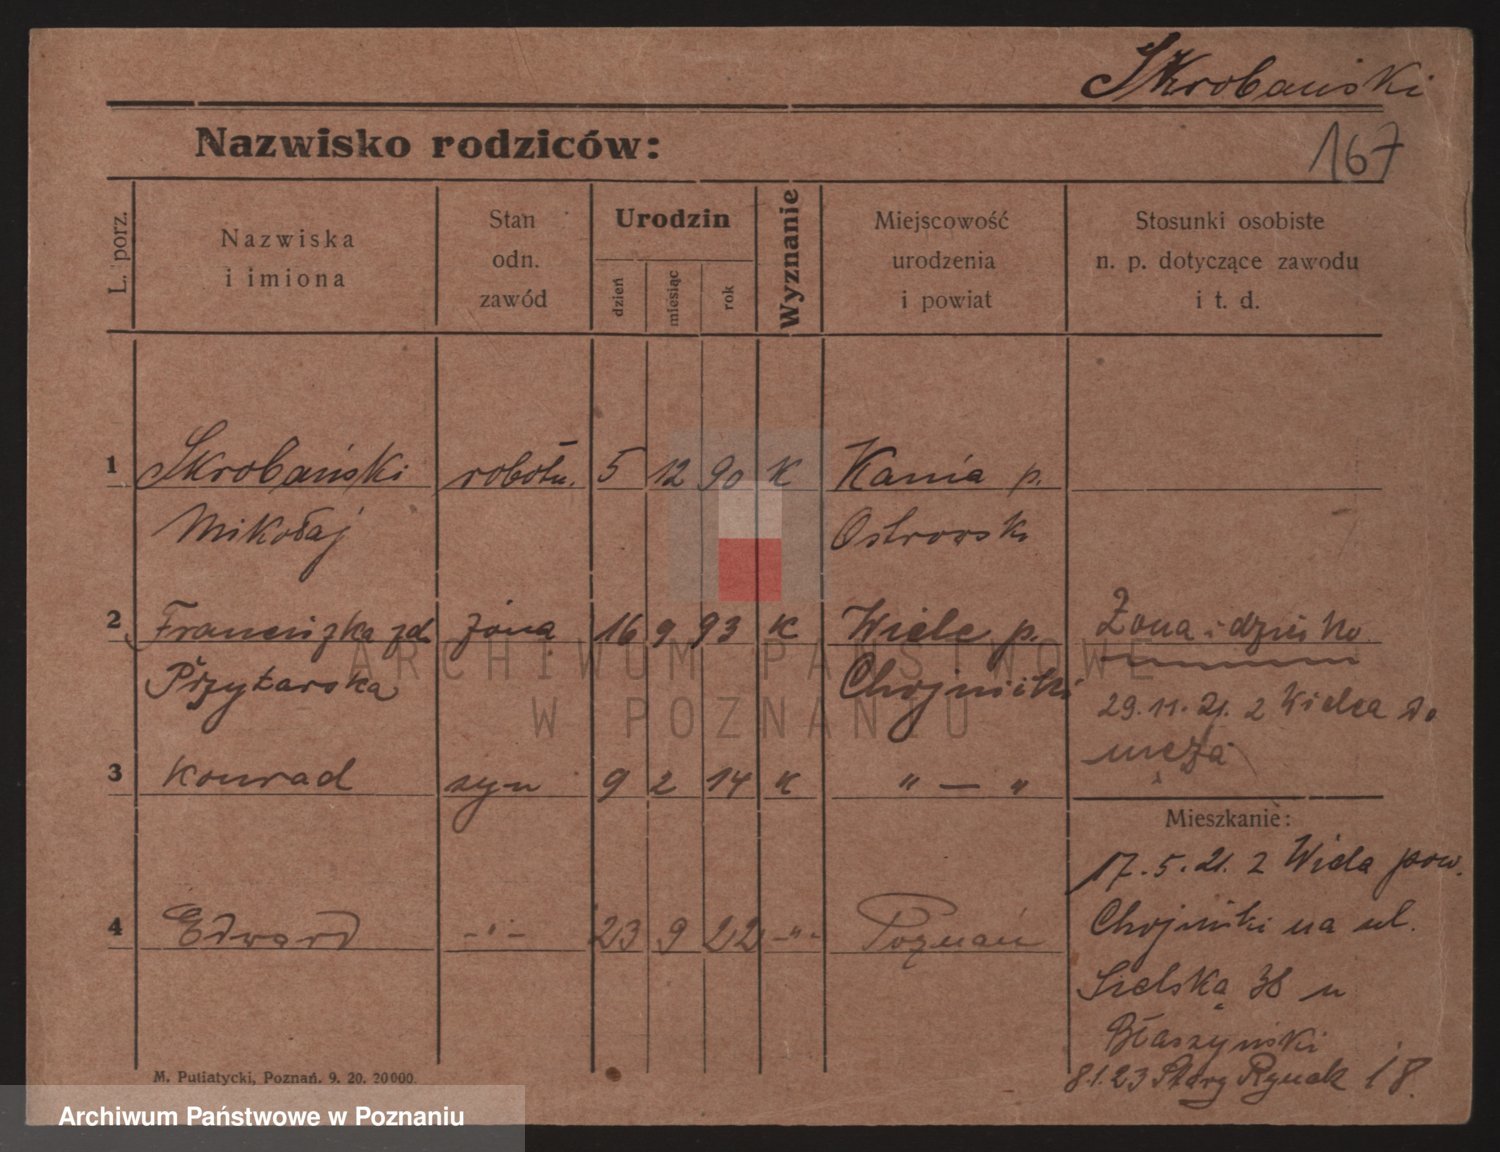 Skrobański
Nazwisko rodziców:
167
L. porz.
Nazwiska
i imiona
Stan
odn.
zawód
Urodzin
dzień
miesiąc
rok
Wyznanie
Miejscowość
urodzenia
i powiat
Stosunki osobiste
n. p. dotyczące zawodu
i t. d.
1 Skrobański robotn. 5 12 90 K Kania p.
Mikołaj Ostrowsk
2 Franciszka zd. żona 16 9 93 K Wiele p. Żona i dziecko
Przytarska Chojnicki
29.11.21. z Wielea do
męża
3 Konrad syn 9 2 14 K " — "
Mieszkanie:
17.5.21. z Wiela pow.
4 Edward -"- 23 9 22 -"- Poznań
Chojnicki na ul.
Sielską 38 u
Błaszyński
8.1.23 Stary Rynek 18.
M. Putiatycki, Poznań. 9. 20. 20000.
ARCHIWUM PAŃSTWOWE
W POZNANIU
Archiwum Państwowe w Poznaniu